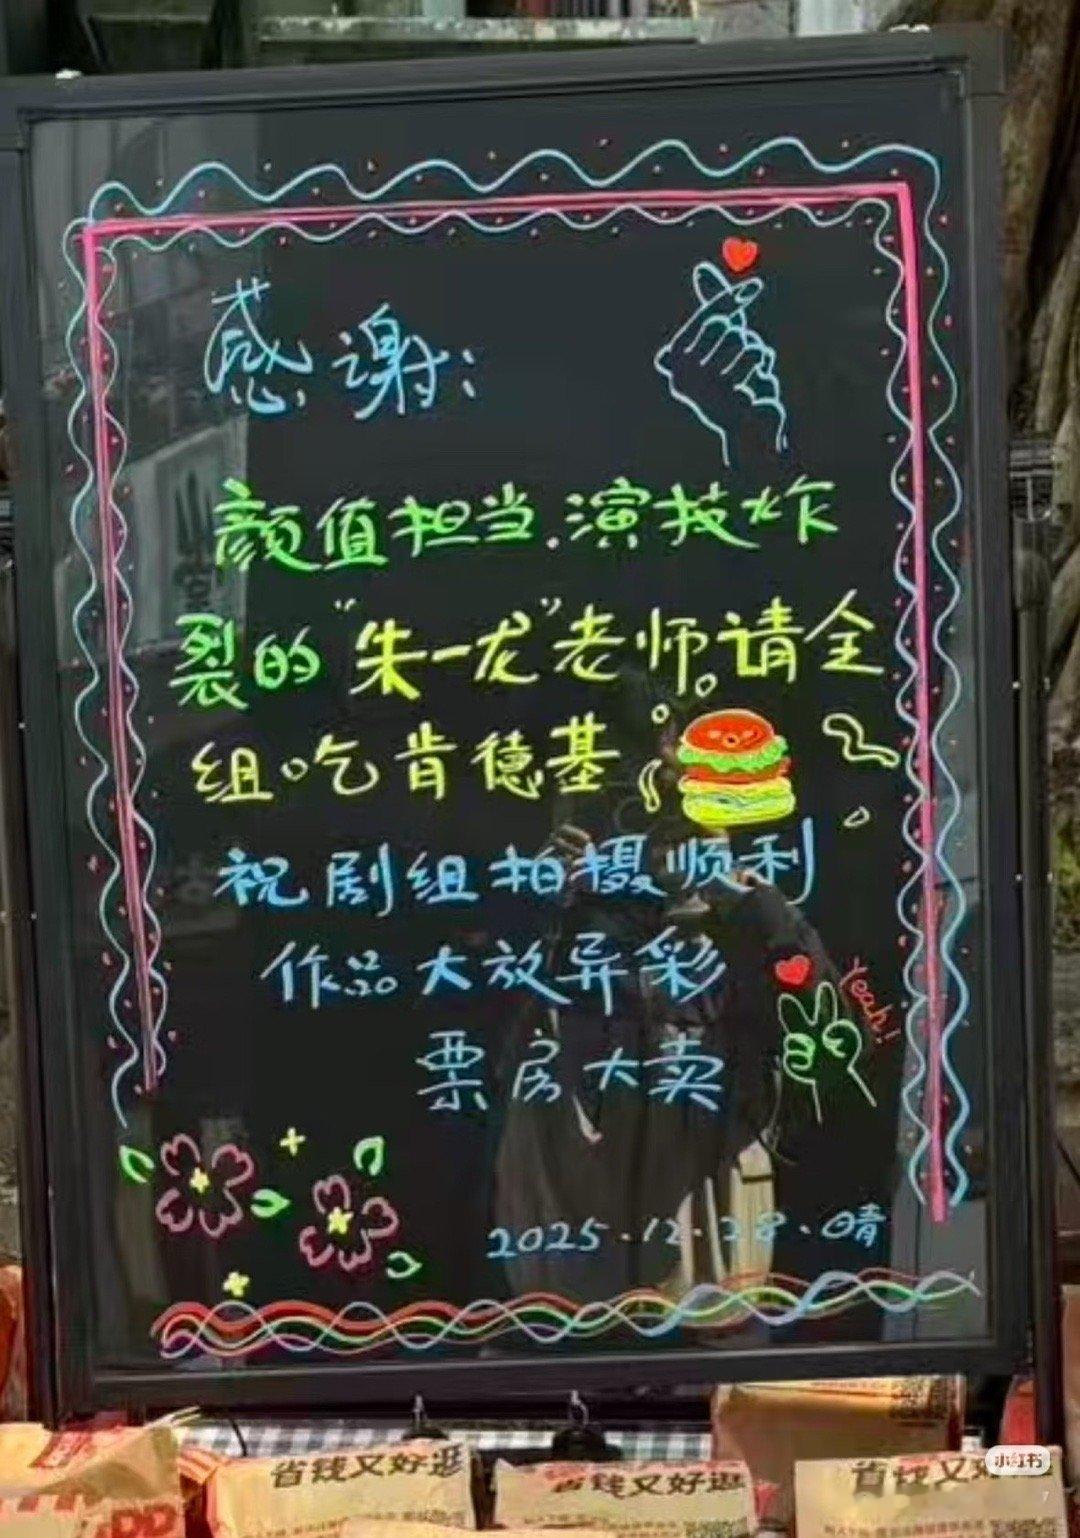 感谢:
颜值担当.演技炸
裂的"朱一龙"老师。请全
组吃肯德基
祝剧组拍摄顺利
作品大放异彩
Yeah!
票房大卖
2025.12.28.晴
省钱又好逛
省钱又好逛
省钱又
小红书